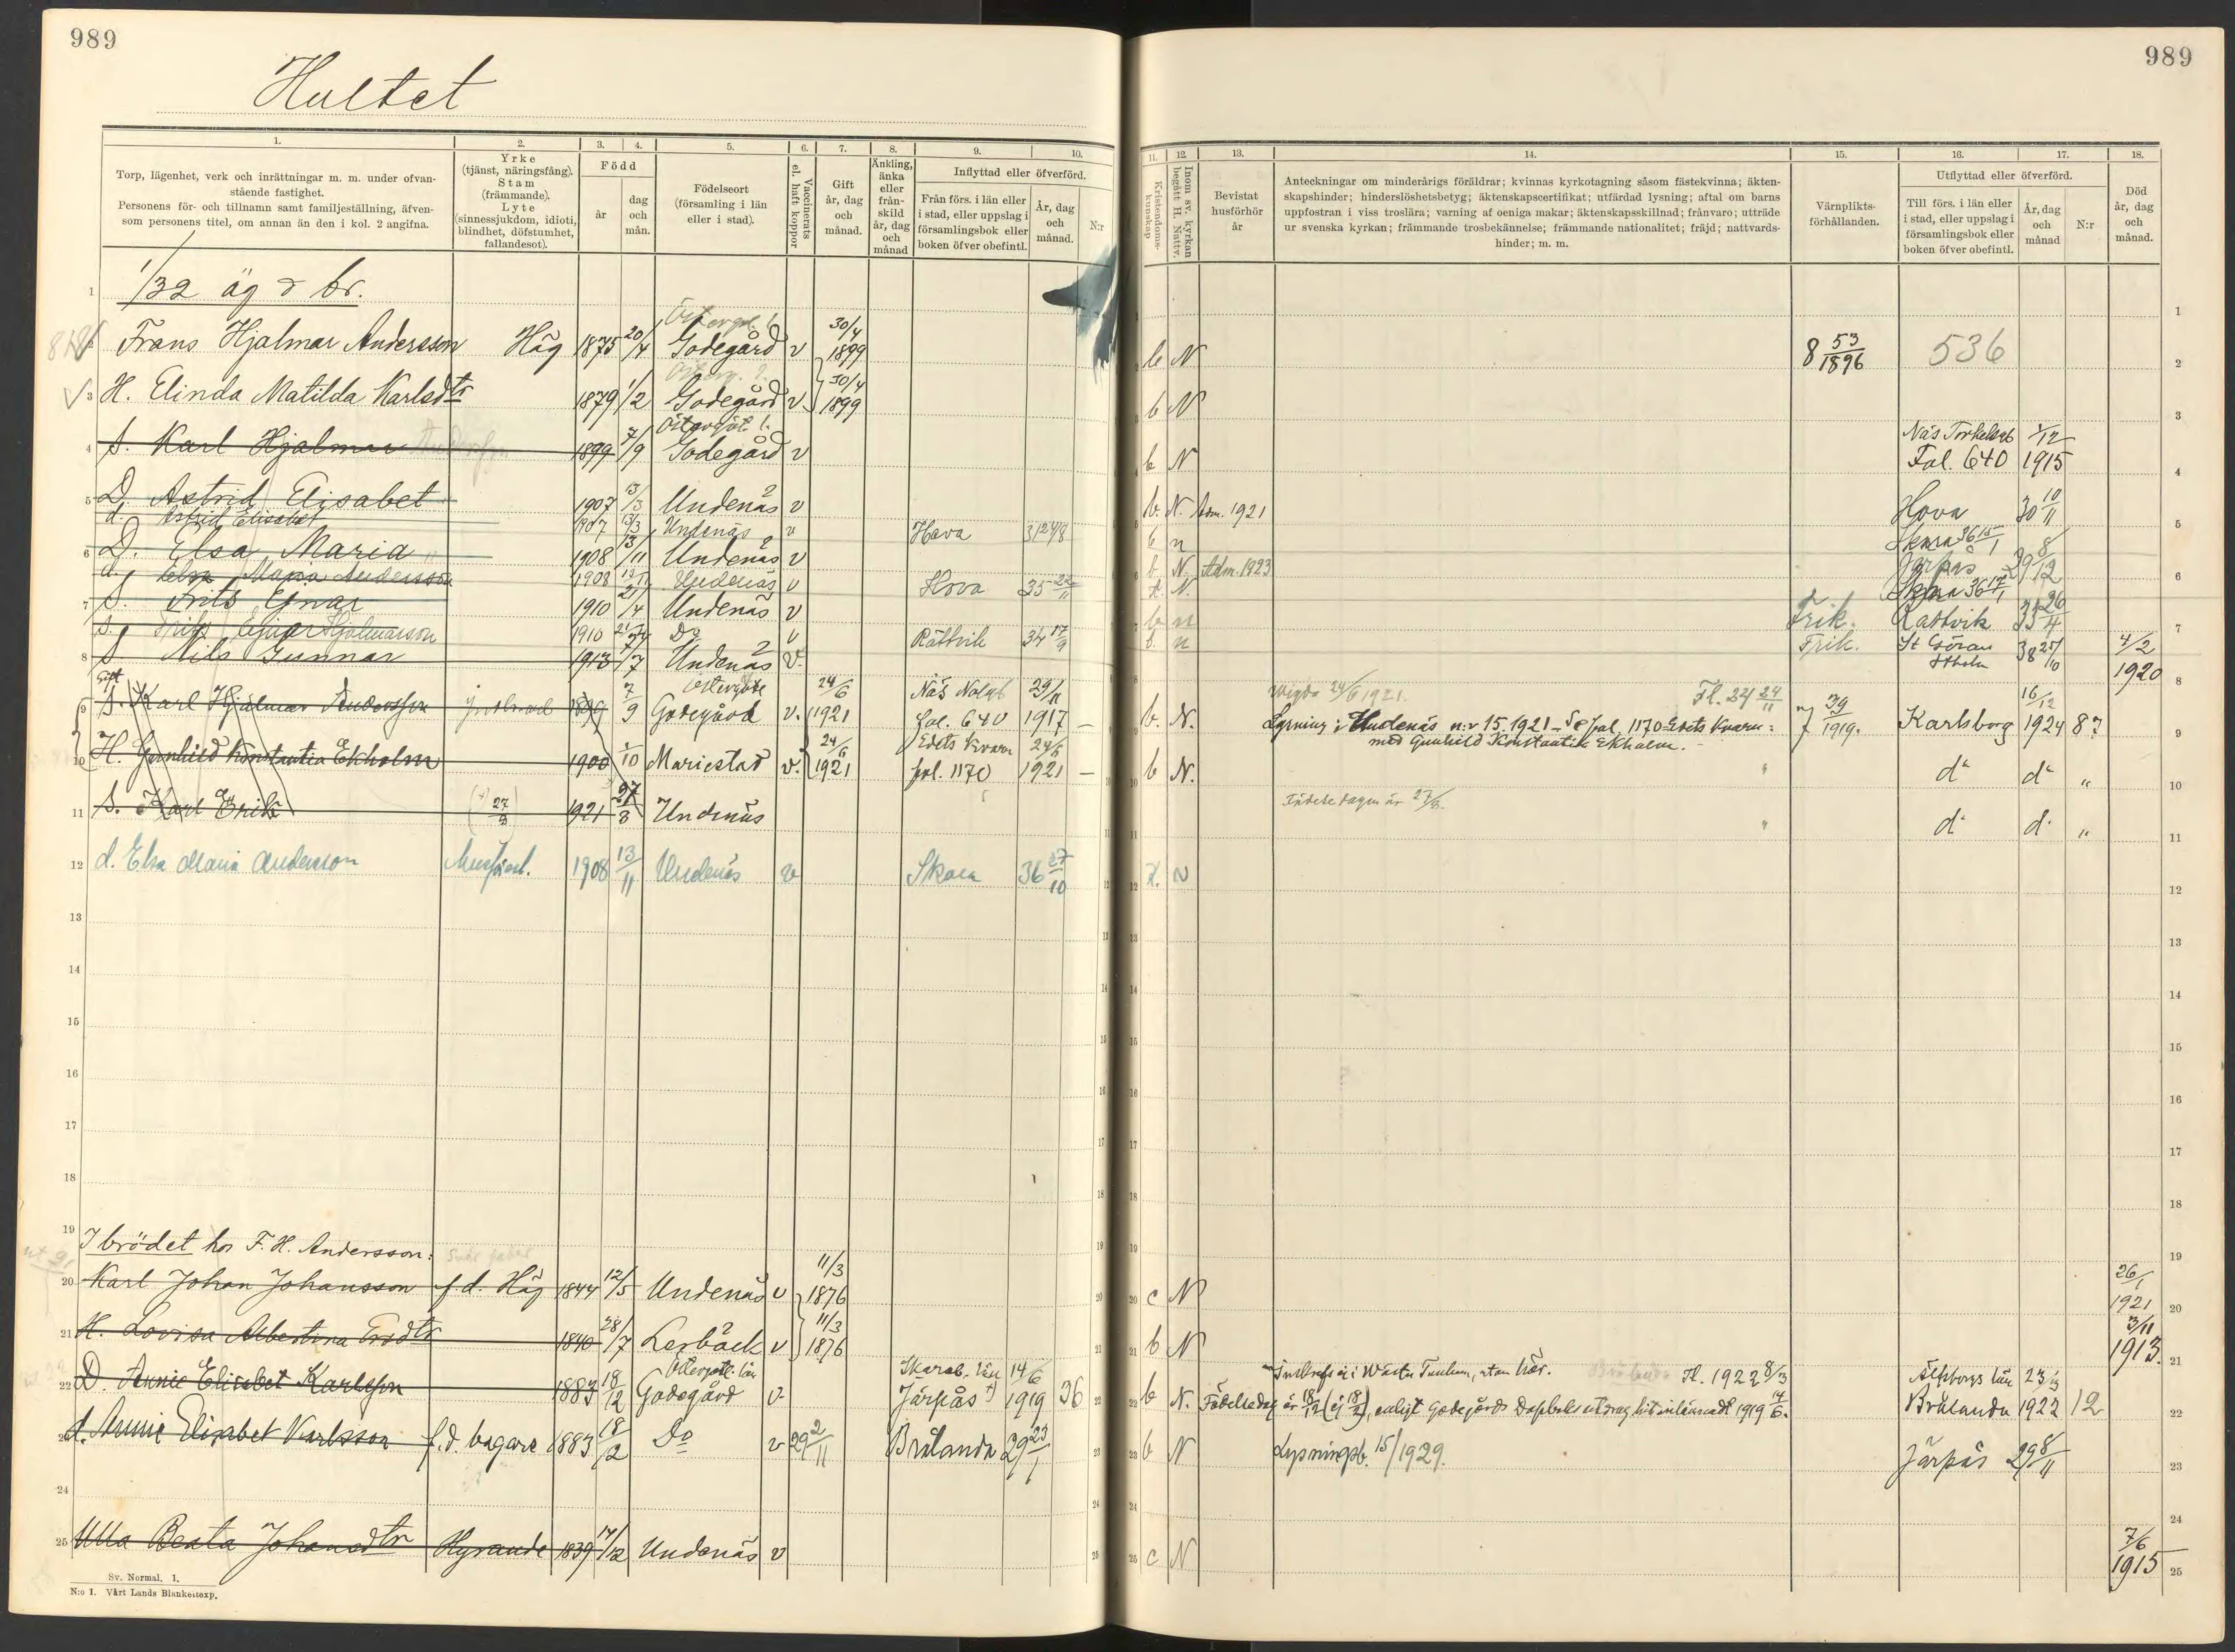 989
989
Hultet
1.
Torp, lägenhet, verk och inrättningar m. m. under ofvan-
stående fastighet.
Personens för- och tillnamn samt familjeställning, äfven-
som personens titel, om annan än den i kol. 2 angifna.
2.
Yrke
(tjänst, näringsfång).
Stam
(främmande).
Lyte
(sinnessjukdom, idioti,
blindhet, döfstumhet,
fallandesot).
3. 4.
Född
år
dag
och
mån.
5.
Födelseort
(församling i län
eller i stad).
6.
Vaccinerats
el. haft koppor
7.
Gift
år, dag
och
månad.
8.
Änkling,
änka
eller
från-
skild
år, dag
och
månad
9. 10.
Inflyttad eller öfverförd.
Från förs. i län eller
i stad, eller uppslag i
församlingsbok eller
boken öfver obefintl.
År, dag
och
månad.
N:r
11.
Kristendoms-
kunskap
12.
Inom sv. kyrkan
begått H. Nattv.
13.
Bevistat
husförhör
år
14.
Anteckningar om minderårigs föräldrar; kvinnas kyrkotagning såsom fästekvinna; äkten-
skapshinder; hinderslöshetsbetyg; äktenskapscertifikat; utfärdad lysning; aftal om barns
uppfostran i viss troslära; varning af oeniga makar; äktenskapsskillnad; frånvaro; utträde
ur svenska kyrkan; främmande trosbekännelse; främmande nationalitet; fräjd; nattvards-
hinder; m. m.
15.
Värnplikts-
förhållanden.
16. 17.
Utflyttad eller öfverförd.
Till förs. i län eller
i stad, eller uppslag i
församlingsbok eller
boken öfver obefintl.
År, dag
och
månad
N:r
18.
Död
år, dag
och
månad.
1 1/32 äg o br.
2 Frans Hjalmar Andersson Häg 1875 20/4 Godegård v 30/4 1899 b N 8 53/1896 536
3 H. Elinda Matilda Karlsdtr 1879 1/2 Godegård v 30/4 1899 b N
Östergöt. l.
4 S. Karl Hjalmar 1899 7/9 Godegård v b N Fol. 640 1/12 1915
5 D. Astrid Elisabet 1907 13/3 Undenäs v b. N. Adm. 1921 Hova 30 10/11
d. Astrid Elisabet 1907 13/3 Undenäs v Hova b n Skara 36 15/1
6 D. Elsa Maria 1908 13/11 Undenäs v b N. Adm. 1923 Järpås 29 8/12
d. Elsa Maria Andersson 1908 13/11 Undenäs v Hova 35 22/11 N. Skara 36 17/1
7 S. Frits Ejnar 1910 21/4 Undenäs v b n Frik. Rättvik 33 26/4
s. Frits Ejnar Hjalmarson 1910 21/4 Do v Rättvik 34 17/9 b. n Frik. St Göran Sthlm 38 25/10
8 S Nils Gunnar 1913 7/7 Undenäs v. 4/2 1920
Gift
9 S. Karl Hjalmar Andersson 1899 7/9 Godegård v. 24/6 1921 fol. 640 29/11 1917 – b. N. 39/1919. Karlsborg 16/12 1924 87
Vigda 24/6 1921.
Lysning i Undenäs n:r 15. 1921 – Se fol. 1170 Edets Kvarn:
med Gunhild Konstantia Ekholm.–
10 H. Gunhild Konstantia Ekholm 1900 1/10 Mariestad v. 24/6 1921 Edets Kvarn fol. 1170 24/6 1921 – b N. do do "
11 S. Karl Erik 1921 27/8 Undenäs Födelsedagen är 27/8. do d. "
12 d. Elsa Maria Andersson 1908 13/11 Undenäs v Skara 36 27/10 N
13
14
15
16
17
18
19 I brödet hos F. H. Andersson:
20 Karl Johan Johansson f. d. Häg 1844 12/5 Undenäs v 11/3 1876 c N 26/1 1921
21 H. Lovisa Albertina 1840 28/7 Lerbäck v 11/3 1876 b N 3/11 1913.
22 D. Annie Elisabet Karlsson 1883 18/12 Östergötl. län Godegård v Skarab. län Järpås 14/6 1919 36 b N. Älfsborgs län Brålanda 1922 12
Fl. 1922 8/3
Födelsedag är 18/12 (ej 18/2), enligt Godegårds Dopboks utdrag hit inlämnadt 1919 14/6.
23 d. Annie Elisabet Karlsson f. d. bagare 1883 18/12 Do v 29 2/11 Brålanda 29 23/1 b N Lysningsb. 15/1929. Järpås 29 8/11
24
25 Ulla Beata Johansdtr Hyrande 1839 17/12 Undenäs v c N 7/6 1915
Sv. Normal. 1.
N:o 1. Vårt Lands Blankettexp.